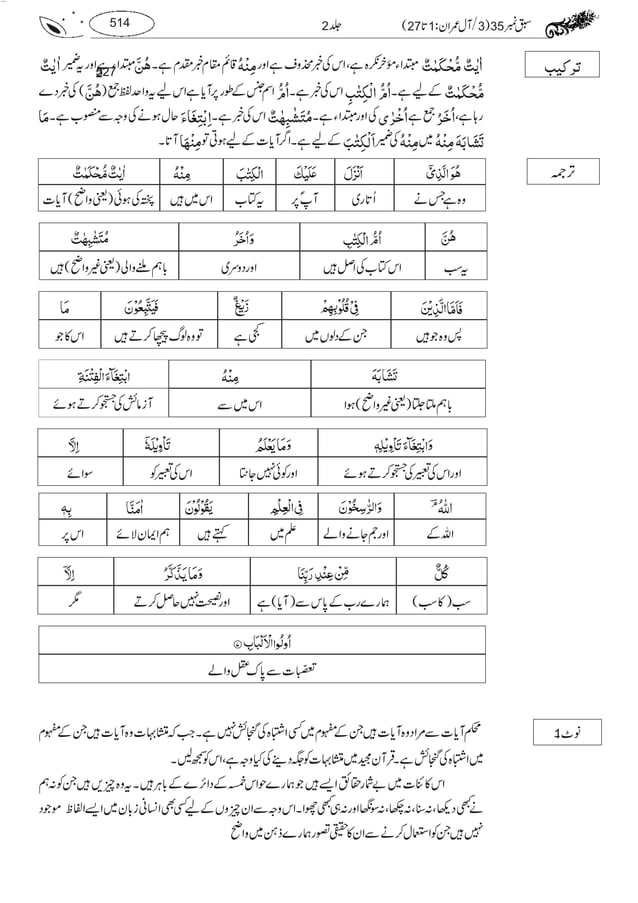 سبق نمبر 35(3/آل عمران: 1 تا 27) جلد 2 514
ترکیب
اٰیٰتٌ مُّحْکَمٰتٌ مبتداء مؤخر نکرہ ہے، اس کی خبر محذوف ہے اور مِنْہُ قائم مقام خبر مقدم ہے۔ ھُنَّ مبتداء ہے اور یہ ضمیر اٰیٰتٌ
مُّحْکَمٰتٌ کے لیے ہے۔ اُمُّ الْکِتٰبِ اس کی خبر ہے۔ اُمُّ اسم جنس کے طور پر آیا ہے اس لیے یہ واحد لفظ جمع (ھُنَّ) کی خبر دے
رہا ہے، اُخَرُ جمع ہے اُخْرٰی کی اور مبتداء ہے۔ مُتَشٰبِھٰتٌ اس کی خبر ہے۔ اِبْتِغَاءَ حال ہونے کی وجہ سے منصوب ہے۔ مَا
تَشَابَہَ مِنْہُ میں مِنْہُ کی ضمیر اَلْکِتٰبَ کے لیے ہے۔ اگر آیات کے لیے ہوتی تو مِنْھَا آتا۔
ترجمہ
ھُوَ الَّذِیْٓ اَنْزَلَ عَلَیْكَ الْكِتٰبَ مِنْهُ اٰیٰتٌ مُّحْكَمٰتٌ
وہ ہے جس نے اُتاری آپؐ پر یہ کتاب اس میں ہیں پختہ کی ہوئی (یعنی واضح) آیات
هُنَّ اُمُّ الْكِتٰبِ وَاُخَرُ مُتَشٰبِهٰتٌ
یہ سب اس کتاب کی اصل ہیں اور دوسری باہم ملنے والی (یعنی غیر واضح) ہیں
فَاَمَّا الَّذِیْنَ فِیْ قُلُوْبِهِمْ زَیْغٌ فَیَتَّبِعُوْنَ مَا
پس وہ جو ہیں جن کے دلوں میں کجی ہے تو وہ لوگ پیچھا کرتے ہیں اس کا جو
تَشَابَهَ مِنْهُ ابْتِغَآءَ الْفِتْنَةِ
باہم ملتا جلتا (یعنی غیر واضح) ہوا اس میں سے آزمائش کی جستجو کرتے ہوئے
وَابْتِغَآءَ تَاْوِیْلِهٖ وَمَا یَعْلَمُ تَاْوِیْلَهٗٓ اِلَّا
اور اس کی تعبیر کی جستجو کرتے ہوئے اور کوئی نہیں جانتا اس کی تعبیر کو سوائے
اللّٰهُ وَالرّٰسِخُوْنَ فِی الْعِلْمِ یَقُوْلُوْنَ اٰمَنَّا بِهٖ
اللہ کے اور جم جانے والے علم میں کہتے ہیں ہم ایمان لائے اس پر
كُلٌّ مِّنْ عِنْدِ رَبِّنَا وَمَا یَذَّكَّرُ اِلَّآ
سب (کا سب) ہمارے رب کے پاس سے (آیا) ہے اور نصیحت نہیں حاصل کرتے مگر
اُولُوا الْاَلْبَابِ
تعصبات سے پاک عقل والے
نوٹ 1
محکم آیات سے مراد وہ آیات ہیں جن کے مفہوم میں کسی اشتباہ کی گنجائش نہیں ہے۔ جب کہ متشابہات وہ آیات ہیں جن کے مفہوم
میں اشتباہ کی گنجائش ہے۔ قرآن مجید میں متشابہات کو جگہ دینے کی کیا وجہ ہے، اس کو سمجھ لیں۔
اس کائنات میں بے شمار حقائق ایسے ہیں جو ہمارے حواس خمسہ کے دائرے کے باہر ہیں۔ یہ وہ چیزیں ہیں جن کو نہ ہم
نے کبھی دیکھا، نہ سنا، نہ چکھا، نہ سونگھا اور نہ ہی کبھی چھوا۔ اس وجہ سے ان چیزوں کے لیے کسی بھی انسانی زبان میں ایسے الفاظ موجود
نہیں ہیں جن کو استعمال کرنے سے ان کا حقیقی تصور ہمارے ذہن میں واضح